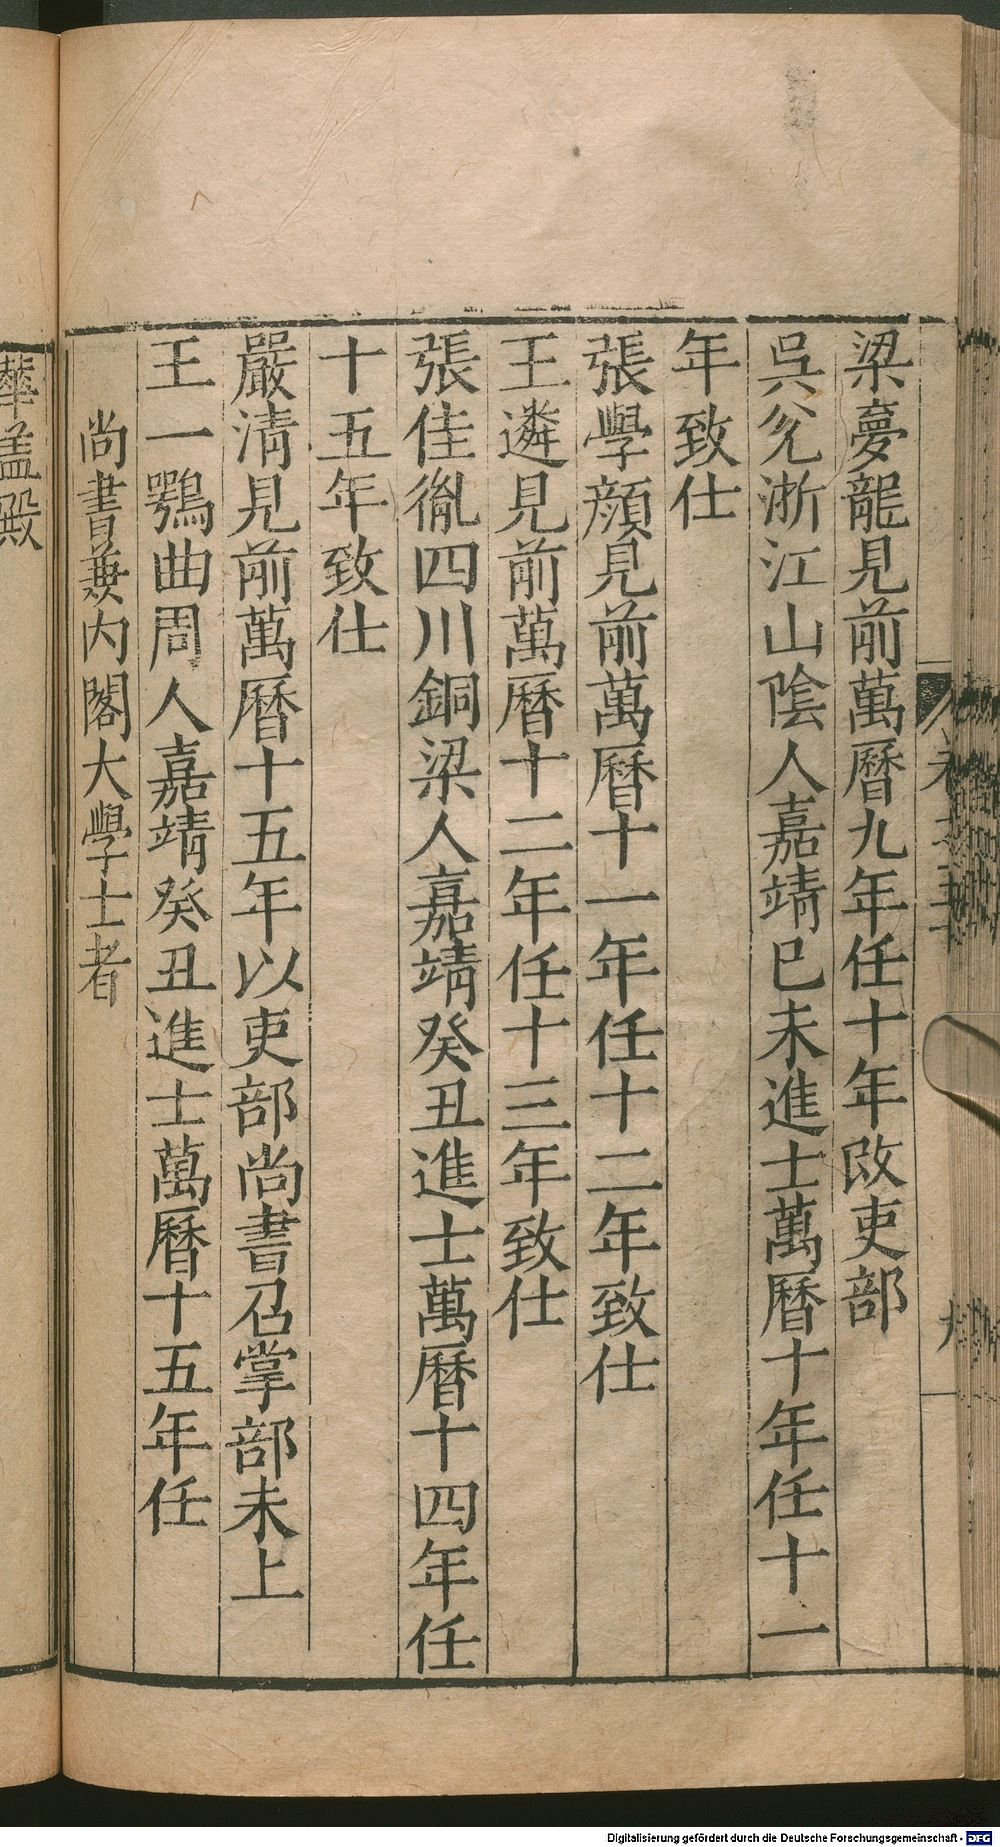 梁夢龍見前萬曆九年任十年改吏部
吳兌浙江山陰人嘉靖已未進士萬曆十年任十一
年致仕
張學顏見前萬曆十一年任十二年致仕
王遴見前萬曆十二年任十三年致仕
張佳胤四川銅梁人嘉靖癸丑進士萬曆十四年任
十五年致仕
嚴清見前萬曆十五年以吏部尚書召掌部未上
王一鶚曲周人嘉靖癸丑進士萬曆十五年任
尚書兼内閣大學士者
華盖殿
Digitalisierung gefördert durch die Deutsche Forschungsgemeinschaft - DFG